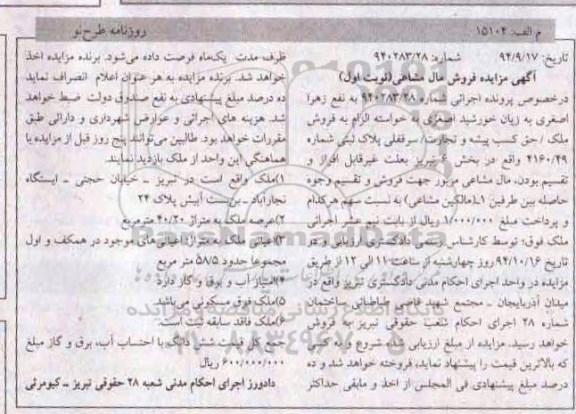 م الف: ۱۵۱۰۴
روزنامه طرح نو
تاریخ: ۹۴/۹/۱۷ شماره: ۹۴۰۲۸۳/۲۸
آگهی مزایده فروش مال مشاعی (نوبت اول)
درخصوص پرونده اجرائی شماره ۹۴۰۲۸۳/۲۸ به نفع زهرا
اصغری به زیان خورشید اصغری به خواسته الزام به فروش
ملک / حق کسب پیشه و تجارت/ سرقفلی پلاک ثبتی شماره
۴۱۶۰/۴۹ واقع در بخش ۶ تبریز بعلت غیرقابل افراز و
تقسیم بودن، مال مشاعی مزبور جهت فروش و تقسیم وجوه
حاصله بین طرفین ۱ـ(مالکین مشاعی) به نسبت سهم هرکدام
و پرداخت مبلغ ۱/۰۰۰/۰۰۰ ریال از بابت نیم عشر اجرائی
ملک فوق: توسط کارشناس رسمی دادگستری ارزیابی و در
تاریخ ۹۴/۱۰/۱۶ روز چهارشنبه از ساعت ۱۱ الی ۱۲ از طریق
مزایده در واحد اجرای احکام مدنی دادگستری تبریز واقع در
میدان آذربایجان ـ مجتمع شهید قاضی طباطبائی ساختمان
شماره ۲۸ اجرای احکام شعب حقوقی تبریز به فروش
خواهد رسید. مزایده از مبلغ ارزیابی شده شروع و به کسی
که بالاترین قیمت را پیشنهاد نماید، فروخته خواهد شد و ده
درصد مبلغ پیشنهادی فی المجلس از اخذ و مابقی حداکثر
ظرف مدت یک‌ماه فرصت داده می‌شود. برنده مزایده اخذ
خواهد شد. برنده مزایده به هر عنوان اعلام انصراف نماید
ده درصد مبلغ پیشنهادی به نفع صندوق دولت ضبط خواهد
شد. هزینه های اجرائی و عوارض شهرداری و دارائی طبق
مقررات خواهد بود. طالبین می‌توانند پنج روز قبل از مزایده با
هماهنگی این واحد از ملک بازدید نمایند.
۱)ملک واقع است در تبریز ـ خیابان حجتی ـ ایستگاه
نجارآباد ـ بن‌بست آبیش پلاک ۲۴
۲)عرصه ملک به متراژ ۴۰/۲۰ مترمربع
۳)اعیانی ملک به متراژ اعیانی‌های موجود در همکف و اول
مجموعا حدود ۵۸/۵ متر مربع
۴)امتیاز آب و برق و گاز دارد
۵)ملک فوق مسکونی می‌باشد
۶)ملک فاقد سابقه ثبت است
جمع کل قیمت شش دانگ با احتساب آب، برق و گاز مبلغ
۶۰۰/۰۰۰/۰۰۰ ریال
دادورز اجرای احکام مدنی شعبه ۲۸ حقوقی تبریز ـ کیومرثی
ParsNamadData
پایگاه اطلاع رسانی مناقصه و مزایده